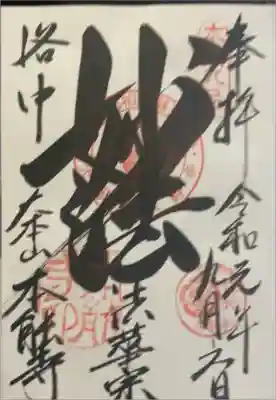 奉拝 令和元年九月六日
妙法
法華宗
洛中 大本山 本能寺